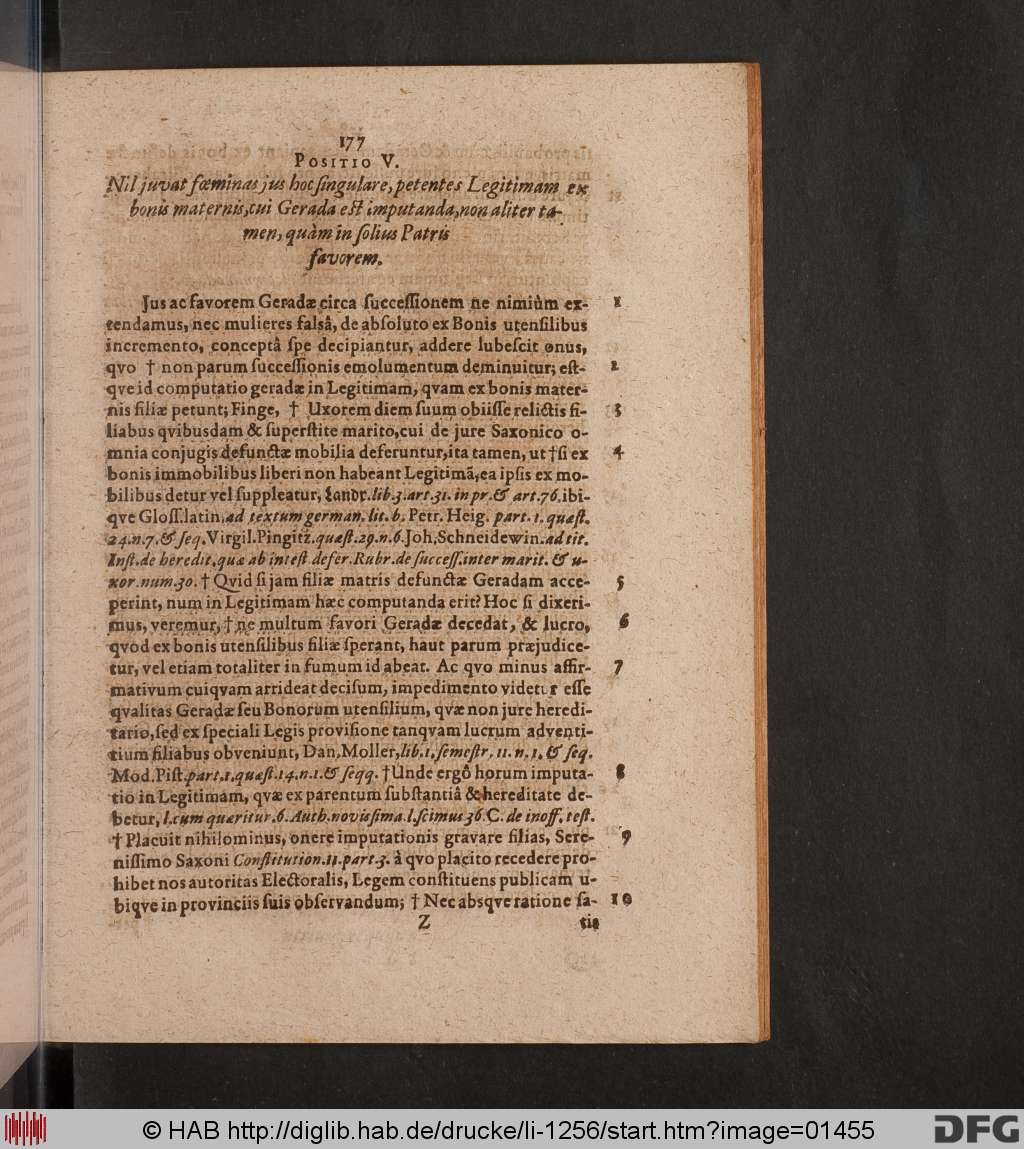 177
POSITIO V.
Nil juvat fœminas jus hoc ſingulare, petentes Legitimam ex
bonis maternis, cui Gerada eſt imputanda, non aliter ta-
men, quàm in ſolius Patris
favorem.
Jus ac favorem Geradæ circa ſucceſſionem ne nimiùm ex- 1
tendamus, nec mulieres falsâ, de abſoluto ex Bonis utenſilibus
incremento, conceptâ ſpe decipiantur, addere lubeſcit onus,
qvo † non parum ſucceſſionis emolumentum deminuitur; eſt- 2
qve id computatio geradæ in Legitimam, qvam ex bonis mater-
nis filiæ petunt; Finge, † Uxorem diem ſuum obiiſſe relictis fi- 3
liabus qvibusdam & ſuperſtite marito, cui de jure Saxonico o-
mnia conjugis defunctæ mobilia deferuntur, ita tamen, ut † ſi ex 4
bonis immobilibus liberi non habeant Legitimã, ea ipſis ex mo-
bilibus detur vel ſuppleatur, Landr. lib. 3. art. 31. in pr. & art. 76. ibi-
qve Gloſſ. latin. ad textum german. lit. b. Petr. Heig. part. 1. quæſt.
24. n. 7. & ſeq. Virgil. Pingitz. quæſt. 29. n. 6. Joh, Schneidewin. ad tit.
Inſt. de heredit. quæ ab inteſt defer. Rubr. de ſucceſſ. inter marit. & u-
xor. num. 30. † Qvid ſi jam filiæ matris defunctæ Geradam acce- 5
perint, num in Legitimam hæc computanda erit? Hoc ſi dixeri-
mus, veremur, † ne multum favori Geradæ decedat, & lucro, 6
qvod ex bonis utenſilibus filiæ ſperant, haut parum præjudice-
tur, vel etiam totaliter in fumum id abeat. Ac qvo minus affir- 7
mativum cuiqvam arrideat deciſum, impedimento videtur eſſe
qvalitas Geradæ ſeu Bonorum utenſilium, qvæ non jure heredi-
tario, ſed ex ſpeciali Legis proviſione tanqvam lucrum adventi-
tium filiabus obveniunt, Dan. Moller, lib. 1. ſemeſtr. 11. n. 1. & ſeq.
Mod. Piſt. part. 1. quæſt. 14. n. 1. & ſeqq. † Unde ergô horum imputa- 8
tio in Legitimam, qvæ ex parentum ſubſtantiâ & hereditate de-
betur, l. cum quæritur. 6. Auth. noviſſima. l. ſcimus 36. C. de inoff. teſt.
† Placuit nihilominus, onere imputationis gravare filias, Sere- 9
niſſimo Saxoni Conſtitution. 11. part. 3. à qvo placito recedere pro-
hibet nos autoritas Electoralis, Legem conſtituens publicam u-
biqve in provinciis ſuis obſervandum; † Nec absqve ratione ſa- 10
Z tis
© HAB http://diglib.hab.de/drucke/li-1256/start.htm?image=01455
DFG